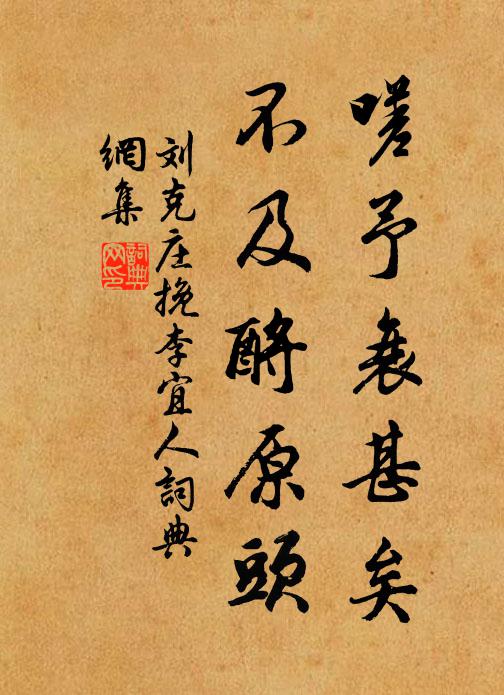 嗟予衰甚矣
不及酹原頭
刘克庄挽李宜人詞典
網集
詞典网印